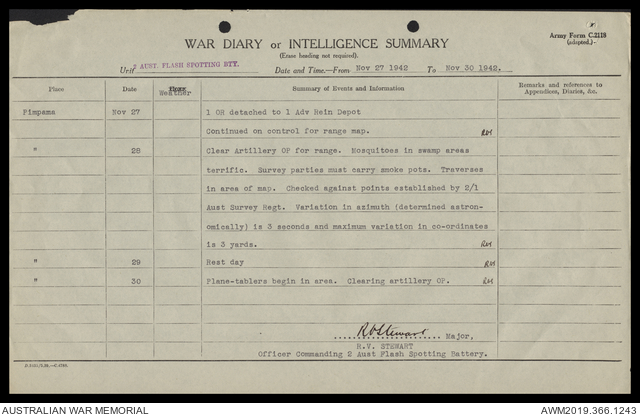 Army Form C.2118
(adapted.)
WAR DIARY or INTELLIGENCE SUMMARY
(Erase heading not required).
Unit 2 AUST. FLASH SPOTTING BTY. Date and Time.—From Nov 27 1942 To Nov 30 1942.
Place Date Weather Summary of Events and Information Remarks and references to Appendices, Diaries, &c.
Pimpama Nov 27 1 OR detached to 1 Adv Rein Depot
Continued on control for range map.
" 28 Clear Artillery OP for range. Mosquitoes in swamp areas
terrific. Survey parties must carry smoke pots. Traverses
in area of map. Checked against points established by 2/1
Aust Survey Regt. Variation in azimuth (determined astron-
omically) is 3 seconds and maximum variation in co-ordinates
is 3 yards.
" 29 Rest day
" 30 Plane-tablers begin in area. Clearing artillery OP.
RVStewart Major,
R.V. STEWART
Officer Commanding 2 Aust Flash Spotting Battery.
AUSTRALIAN WAR MEMORIAL AWM2019.366.1243